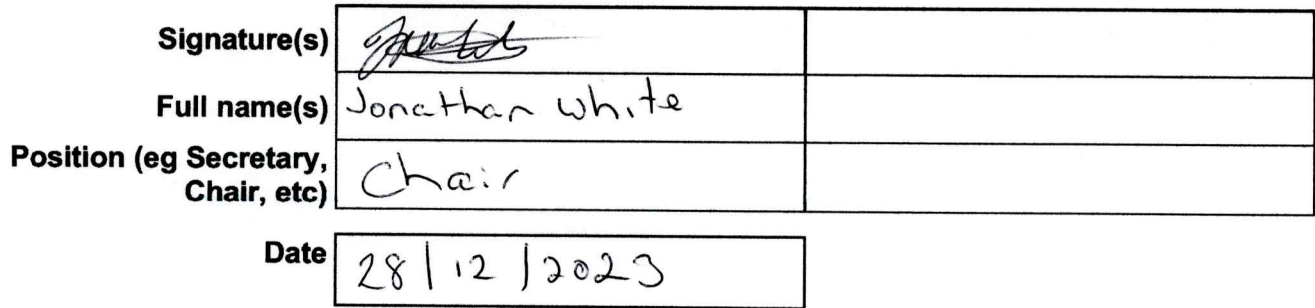 Signature(s)
Full name(s) Jonathan White
Position (eg Secretary,
Chair, etc) Chair
Date 28/12/2023